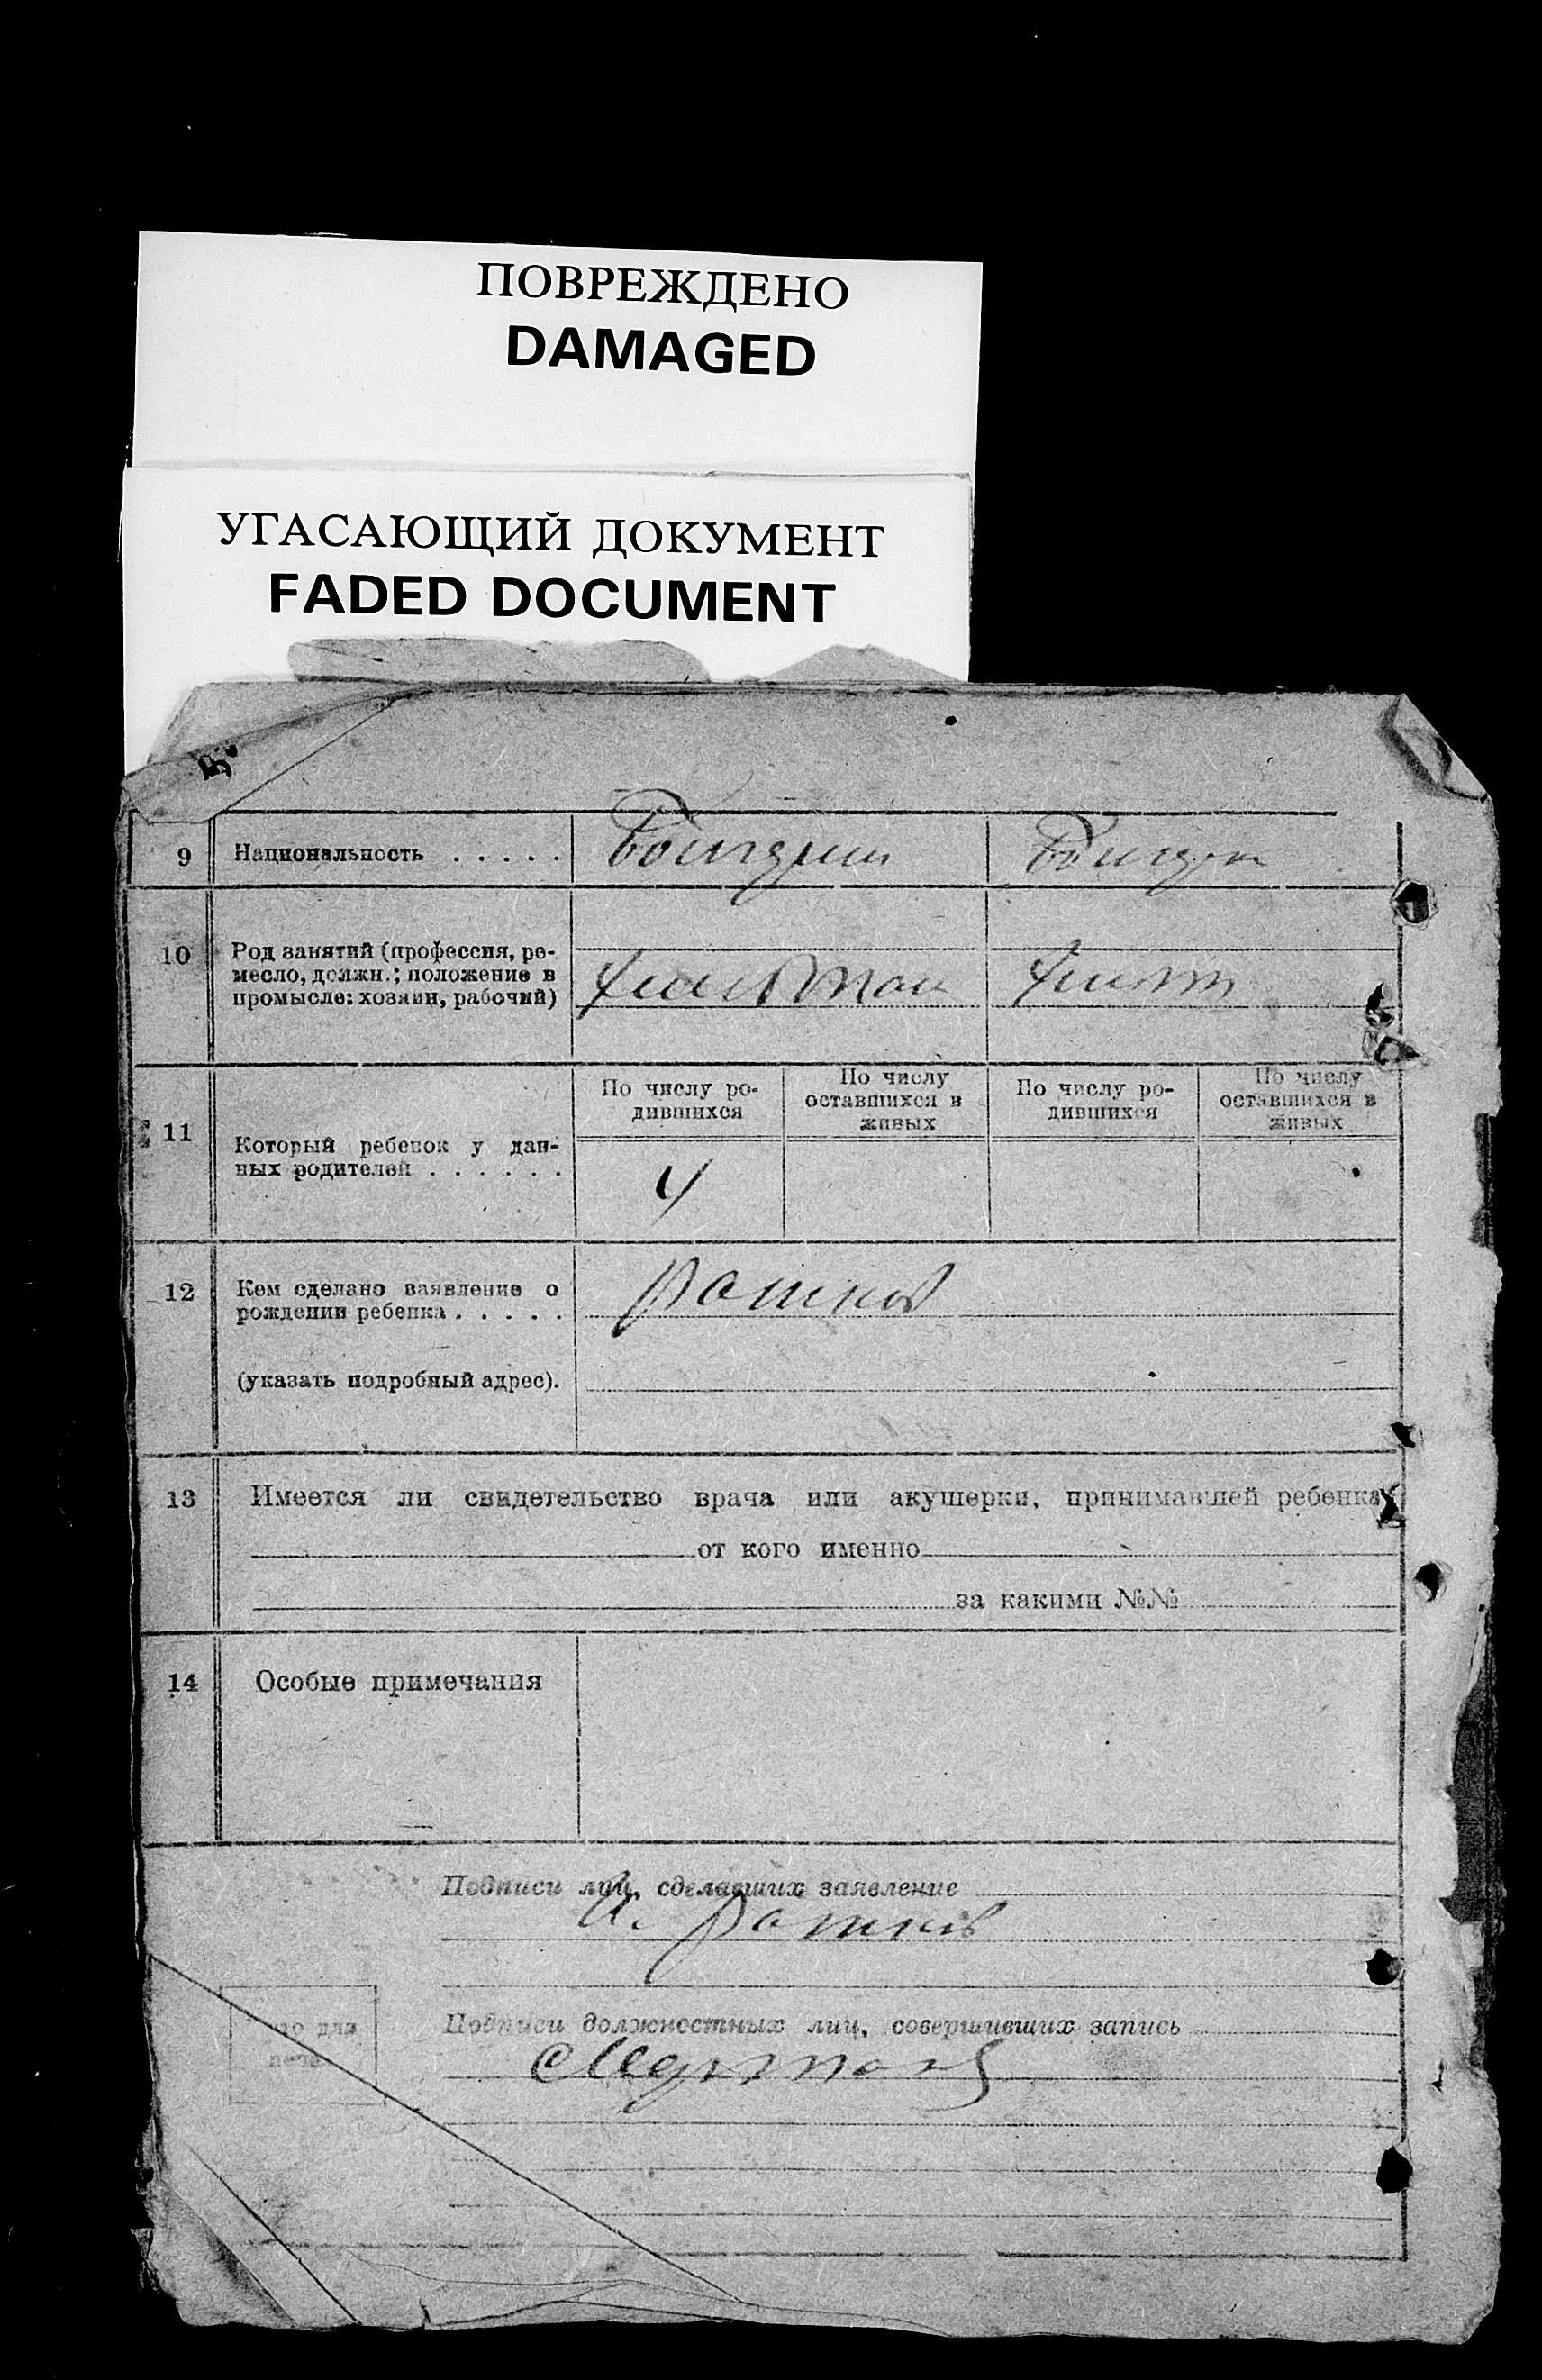 ПОВРЕЖДЕНО
DAMAGED
УГАСАЮЩИЙ ДОКУМЕНТ
FADED DOCUMENT
9 Национальность . . . . .
10 Род занятий (профессия, ре-
месло, должн.; положение в
промысле: хозяин, рабочий)
11 Который ребенок у дан-
ных родителей . . . . . .
По числу ро-
дившихся
По числу
оставшихся в
живых
По числу ро-
дившихся
По числу
оставшихся в
живых
4
12 Кем сделано заявление о
рождении ребенка . . . . .
(указать подробный адрес).
13 Имеется ли свидетельство врача или акушерки, принимавшей ребенка
от кого именно
за какими №№
14 Особые примечания
Подписи лиц, сделавших заявление
Подписи должностных лиц, совершивших запись